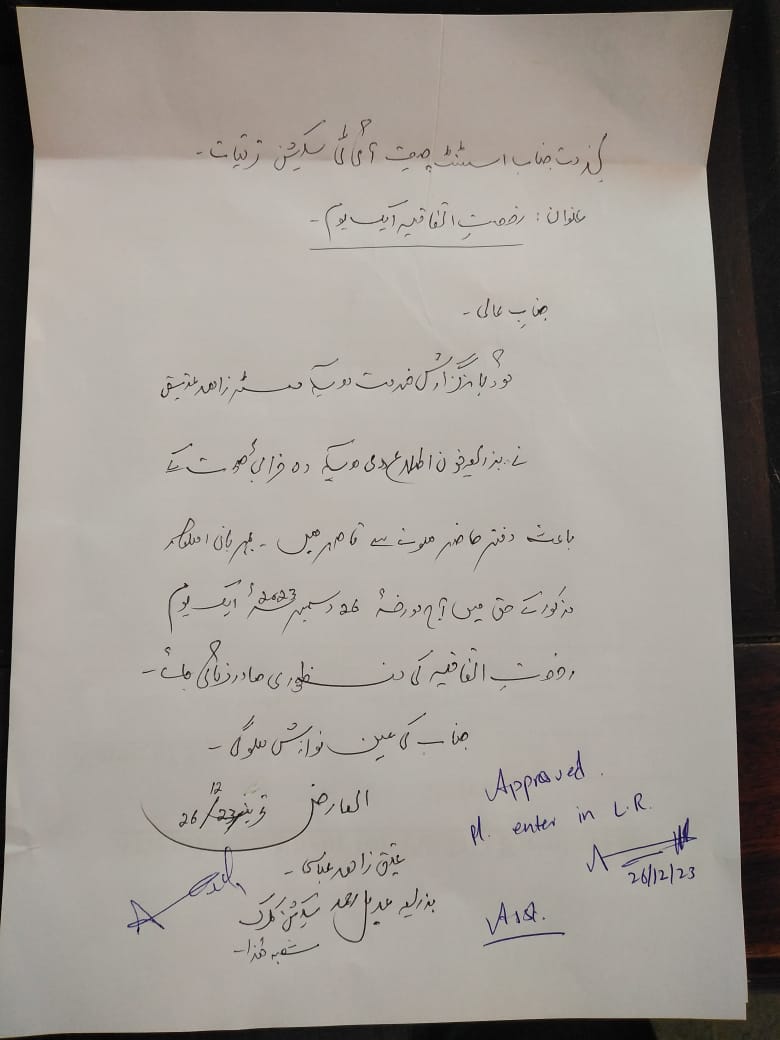 بخدمت جناب اسسٹنٹ چیف آئی ٹی سیکشن ترقیات۔
عنوان: رخصتِ اتفاقیہ ایک یوم۔
جنابِ عالی۔
مؤدبانہ گزارش خدمت ہیکہ مسٹر زاھد عتیق
نے بذریعہ فون اطلاع دی ہیکہ وہ خرابی صحت کے
باعث دفتر حاضر ہونے سے قاصر ہیں۔ مہربانی
مذکور کے حق میں آج مورخہ 26 دسمبر 2023ء ایک یوم
رخصتِ اتفاقیہ کی منظوری صادر فرمائی جائے۔
جناب کی عین نوازش ہوگی۔
العارض
26/12/23
عتیق زاھد عباسی۔
بذریعہ عدیل احمد سیکشن کلرک
شعبہ ھٰذا۔
Approved.
Pl. enter in L.R.
26/12/23
Asst.